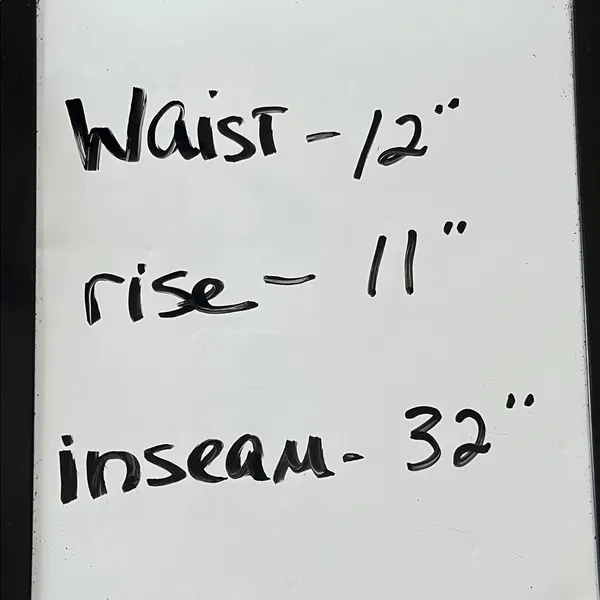 Waist - 12"
rise - 11"
inseam - 32"